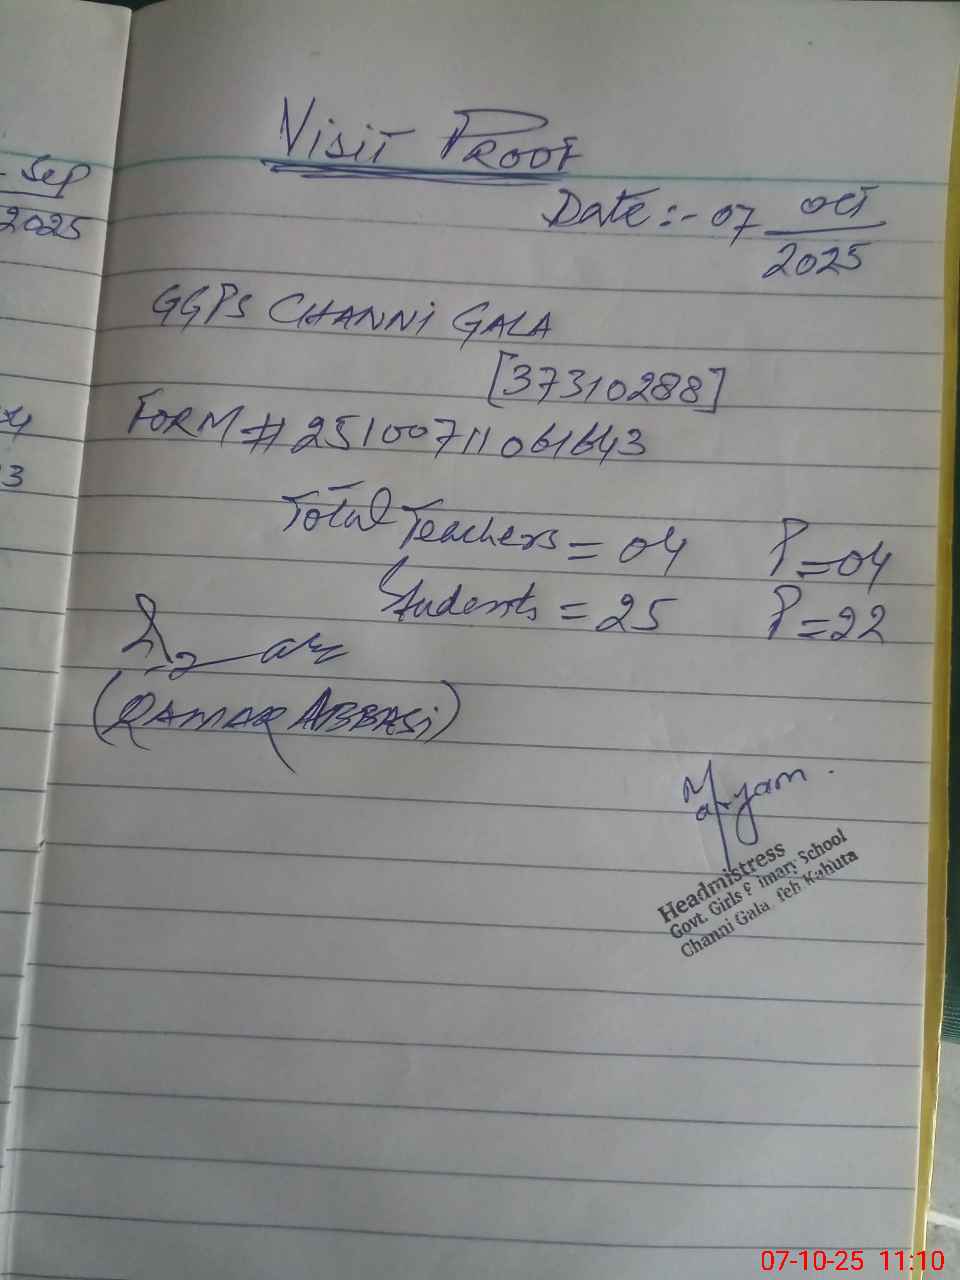 Sep
2025
3
VISIT PROOF
Date :- 07 Oct
2025
GGPS CHANNI GALA
[37310288]
FORM # 25100711061643
Total Teachers = 04 P=04
Students = 25 P=22
(QAMAR ABBASI)
Maryam
Headmistress
Govt. Girls Primary School
Channi Gala Teh Kahuta
07-10-25 11:10